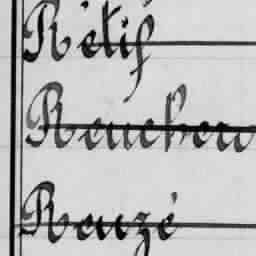 Rétif
Reucheu
Reuzé